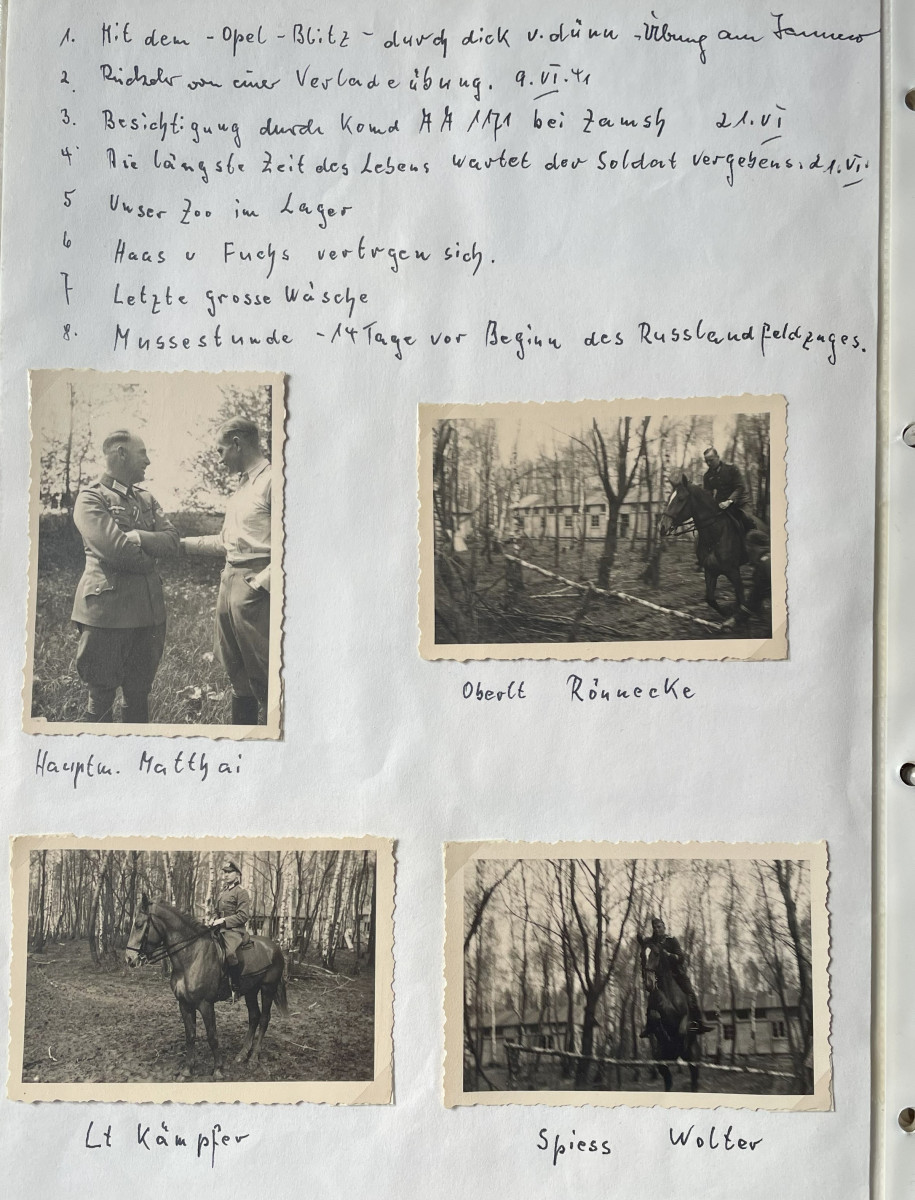 1. Mit dem - Opel - Blitz - durch dick u. dünn - Übung am
2. Rückehr von einer Verladeübung. 9.VI.41
3. Besichtigung durch Komd AA 171 bei Zamsh 21.VI
4. Die längste Zeit des Lebens wartet der Soldat vergebens. 21.VI.
5 Unser Zoo im Lager
6 Haas u Fuchs vertrgen sich.
7 Letzte grosse Wäsche
8. Mussestunde - 14 Tage vor Beginn des Russlandfeldzuges.
Oberlt Rönnecke
Hauptm. Matthai
Lt Kämpfer
Spiess Wolter